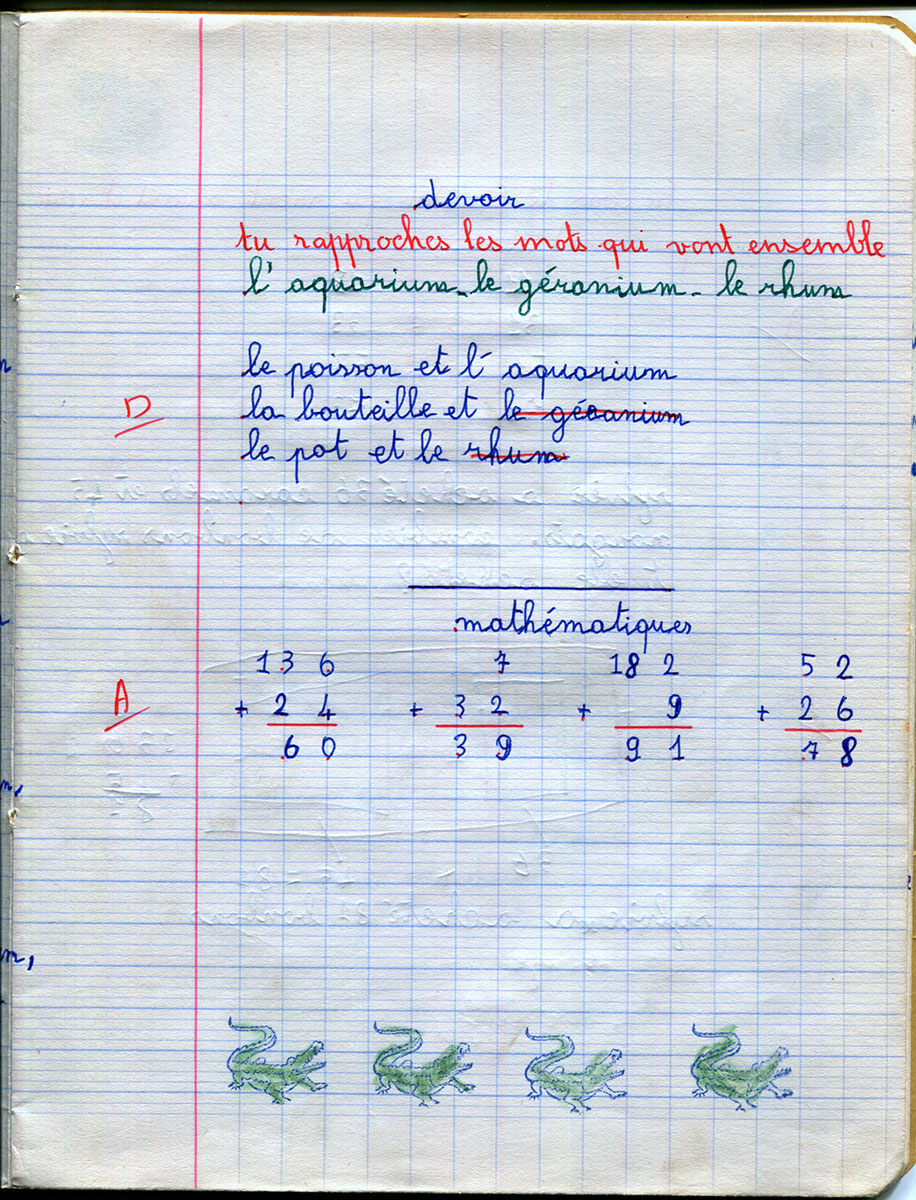 devoir
tu rapproches les mots qui vont ensemble
l'aquarium - le géranium - le rhum
le poisson et l'aquarium
D
la bouteille et le géranium
le pot et le rhum
mathématiques
A
136 7 182 52
+ 24 + 32 + 9 + 26
60 39 91 78